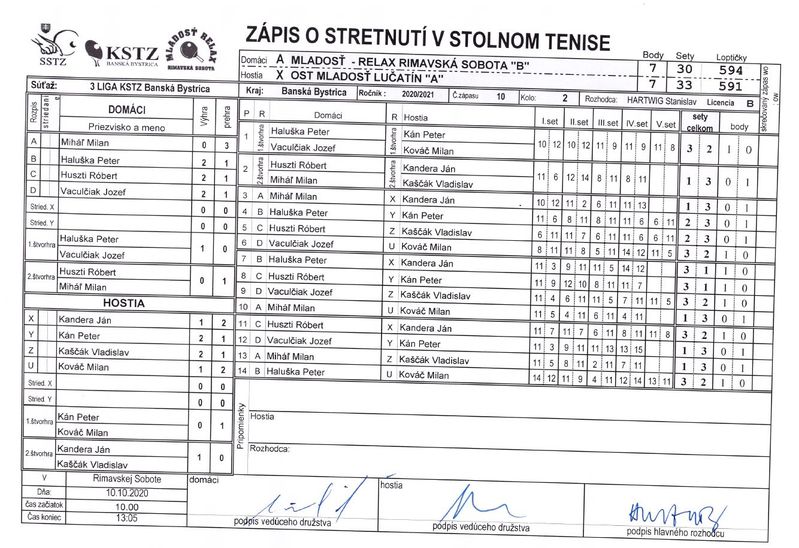 SSTZ
KSTZ
BANSKÁ BYSTRICA
MLADOSŤ RELAX
RIMAVSKÁ SOBOTA
ZÁPIS O STRETNUTÍ V STOLNOM TENISE
Body Sety Loptičky
Domáci A MLADOSŤ - RELAX RIMAVSKÁ SOBOTA "B" 7 30 594
Hostia X OST MLADOSŤ LUČATÍN "A" 7 33 591
Súťaž: 3 LIGA KSTZ Banská Bystrica
Kraj: Banská Bystrica Ročník : 2020/2021 Č.zápasu 10 Kolo: 2 Rozhodca: HARTWIG Stanislav Licencia B
skrečovaný zápas wo
Rozpis striedaní DOMÁCI Výhra prehra
Priezvisko a meno
A Mihář Milan 0 3
B Haluška Peter 2 1
C Huszti Róbert 2 1
D Vaculčiak Jozef 2 1
Stried. X 0 0
Stried. Y 0 0
1.štvorhra Haluška Peter 1 0
Vaculčiak Jozef
2.štvorhra Huszti Róbert 0 1
Mihář Milan
HOSTIA
X Kandera Ján 1 2
Y Kán Peter 2 1
Z Kaščák Vladislav 2 1
U Kováč Milan 1 2
Stried. X 0 0
Stried. Y 0 0
1.štvorhra Kán Peter 0 1
Kováč Milan
2.štvorhra Kandera Ján 1 0
Kaščák Vladislav
P R Domáci R Hostia I.set II.set III.set IV.set V.set sety celkom body
1 1.štvorhra Haluška Peter Kán Peter 10 12 10 12 11 9 11 9 11 8 3 2 1 0
Vaculčiak Jozef Kováč Milan
2 2.štvorhra Huszti Róbert Kandera Ján 11 6 12 14 8 11 8 11 1 3 0 1
Mihář Milan Kaščák Vladislav
3 A Mihář Milan X Kandera Ján 10 12 11 2 6 11 11 13 1 3 0 1
4 B Haluška Peter Y Kán Peter 11 6 8 11 8 11 11 6 6 11 2 3 0 1
5 C Huszti Róbert Z Kaščák Vladislav 11 6 11 7 6 11 6 11 6 11 2 3 0 1
6 D Vaculčiak Jozef U Kováč Milan 8 11 11 8 5 11 14 12 11 5 3 2 1 0
7 B Haluška Peter X Kandera Ján 11 3 9 11 11 5 14 12 3 1 1 0
8 C Huszti Róbert Y Kán Peter 11 9 12 10 8 11 11 7 3 1 1 0
9 D Vaculčiak Jozef Z Kaščák Vladislav 11 4 6 11 11 5 7 11 11 5 3 2 1 0
10 A Mihář Milan U Kováč Milan 1 3 0 1
11 C Huszti Róbert X Kandera Ján 11 7 11 7 6 11 8 11 11 8 3 2 1 0
12 D Vaculčiak Jozef Y Kán Peter 11 3 9 11 11 13 13 15 1 3 0 1
13 A Mihář Milan Z Kaščák Vladislav 11 5 8 11 2 11 7 11 1 3 0 1
14 B Haluška Peter U Kováč Milan 14 12 11 9 4 11 12 14 13 11 3 2 1 0
Pripomienky
Hostia
Rozhodca:
V Rimavskej Sobote
Dňa: 10.10.2020
čas začiatok 10.00
Čas koniec 13:05
domáci
podpis vedúceho družstva
hostia
podpis vedúceho družstva
podpis hlavného rozhodcu